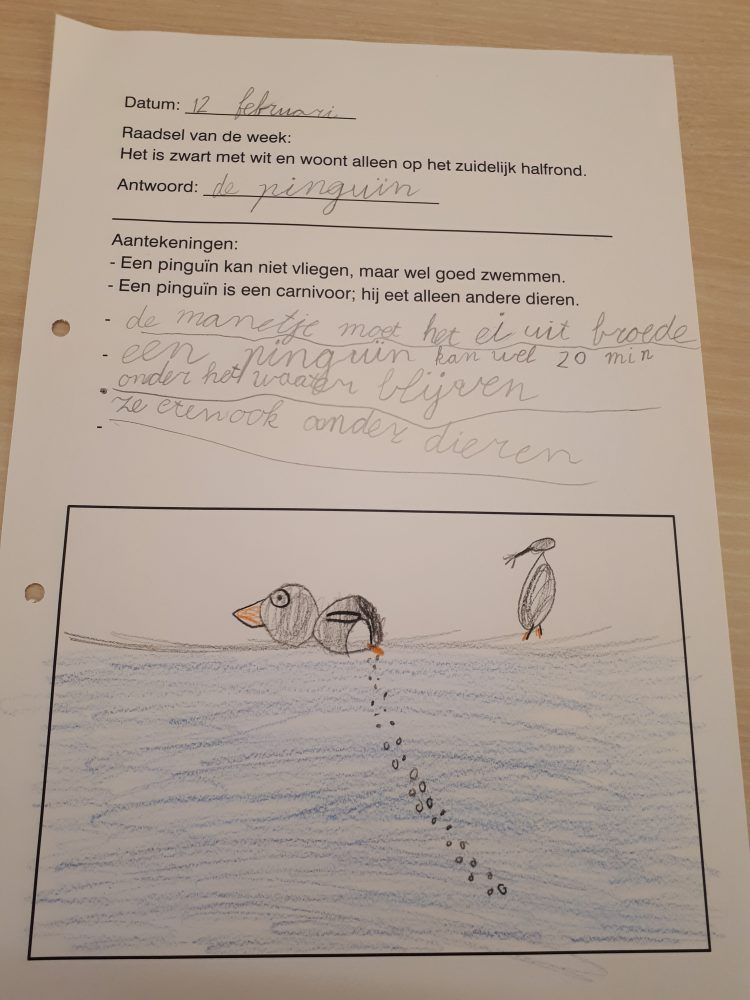 Datum: 12 februari
Raadsel van de week:
Het is zwart met wit en woont alleen op het zuidelijk halfrond.
Antwoord: de pinguïn
Aantekeningen:
- Een pinguïn kan niet vliegen, maar wel goed zwemmen.
- Een pinguïn is een carnivoor; hij eet alleen andere dieren.
- de manetje moet het ei uit broede
- een pinguïn kan wel 20 min
- onder het waater blijven
- ze eten ook ander dieren